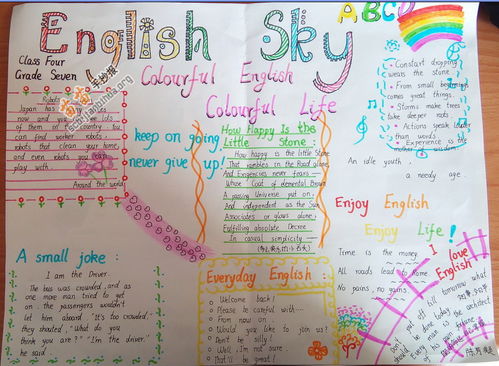 English Sky
ABCD
Class Four
Grade Seven
Colourful English
Colourful Life
Robots
Japan has
now and
of them
can find worker robots
robots that clean your home
and even robots you can
play with
Around the world
keep on going
never give up!
How Happy Is the
Little Stone :
How happy is the little Stone
That rambles in the Road alone,
And Exigencies never fears
Whose Coat of elemental Brown
A passing Universe put on,
And independent as the Sun
Associates or glows alone,
Fulfilling absolute Decree
In casual simplicity
Constant dropping
wears the stone.
From small beginnings
comes great things.
Storms make trees
take deeper roots.
Actions speak louder
than words.
Experience is the
An idle youth ,
a needy age.
Enjoy English
Enjoy Life !
Time is the money
All roads lead to Rome.
No pains, no gains
I love
English!
A small joke :
I am the Driver.
The bus was crowded, and as
one more man tried to get
on the passengers wouldn't
let him aboard "It's too crowded,"
they shouted, "What do you
think you are?" "I'm the driver,"
he said.
Everyday English :
Welcome back!
Please be careful with....
From now on...
Would you like to join us?
Don't be silly!
Well, I'm not sure
That'll be great!
put off till tomorrow what
be done today